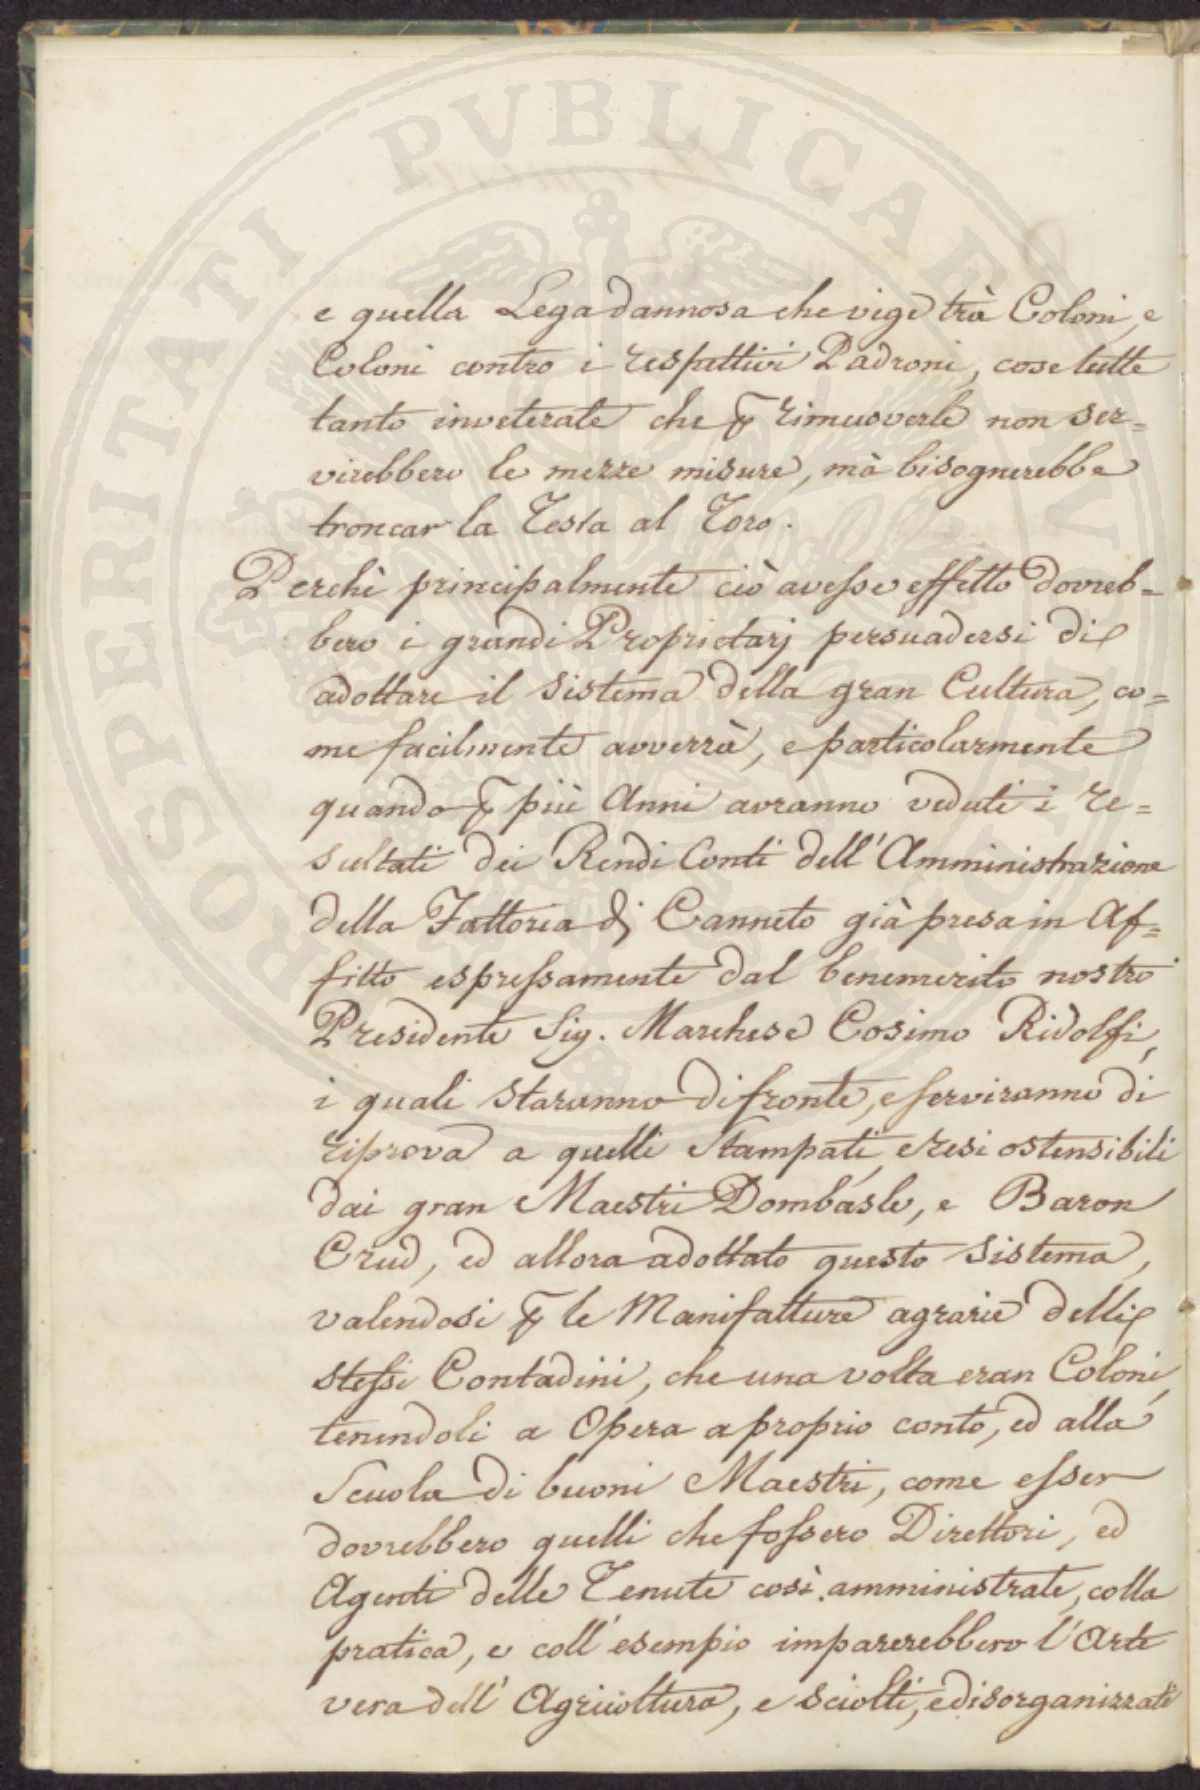 PROSPERITATI PVBLICAE AVGENDAE
e quella Lega dannosa che vige trà Coloni, e
Coloni contro i respettivi Padroni, cose tutte
tanto inveterate che p rimuoverle non ser=
virebbero le mezze misure, mà bisognerebbe
troncar la Testa al Toro.
Perchè principalmente ciò avesse effetto dovreb=
bero i grandi Proprietarj persuadersi di
adottare il sistema della gran Cultura, co=
me facilmente avverrà, e particolarmente
quando p più Anni avranno veduti i re=
sultati dei Rendi Conti dell'Amministrazione
della Fattoria di Canneto già presa in Af=
fitto espressamente dal benemerito nostro
Presidente Sig. Marchese Cosimo Ridolfi,
i quali staranno di fronte, e serviranno di
riprova a quelli Stampati, e resi ostensibili
dai gran Maestri Dombasle, e Baron
Crud, ed allora adottato questo sistema,
valendosi p le Manifatture agrarie delli
stessi Contadini, che una volta eran Coloni,
tenendoli a Opera a proprio conto, ed alla
Scuola di buoni Maestri, come esser
dovrebbero quelli che fossero Direttori, ed
Agenti delle Tenute così amministrate, colla
pratica, e coll'esempio imparerebbero l'Arte
vera dell'Agricoltura, e sciolti, e disorganizzati